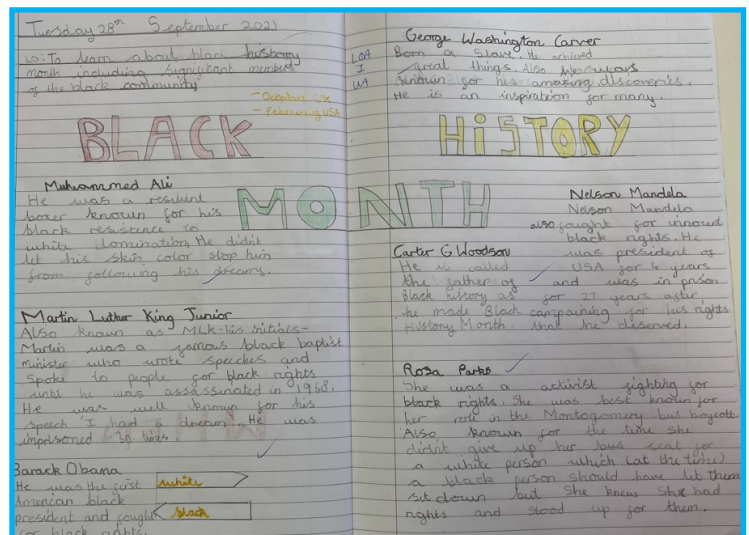 Tuesday 28th September 2021
LO: To learn about black history
month including significant members
of the black community
- October UK
- February USA
BLACK
HISTORY
MONTH
Muhammed Ali
He was a resilient
boxer known for his
black resistence to
white domination, He didn't
let his skin color stop him
from following his dreams.
Martin Luthur King Junior
Also known as MLK-his initials-
Martin was a famous black baptist
minister who wrote speeches and
spoke to people for black rights
until he was assassinated in 1968.
He was well known for his
speech 'I had a dream'. He was
imprisoned 30 times.
Barack Obama
He was the first
American black
president and fought
for black rights.
white
black
George Washington Carver
LOA
I
WA
Born a slave. He achieved
great things. Also
known for his amazing discoveries.
He is an inspiration for many.
Nelson Mandela
Nelson Mandela
also fought for
black rights. He
was president of
USA for 4 years
and was in prison
for 27 years after
campaining for his rights
that he diserved.
Carter G Woodson
He is called
the father of
Black history as
he made Black
History Month
Rosa Parks
She was a activist fighting for
black rights. She was best known for
her role in the Montogomery bus boycott.
Also known for the time she
didn't give up her bus seat for
a white person which (at the time)
a black person should have let them
sit down but she knew she had
rights and stood up for them.